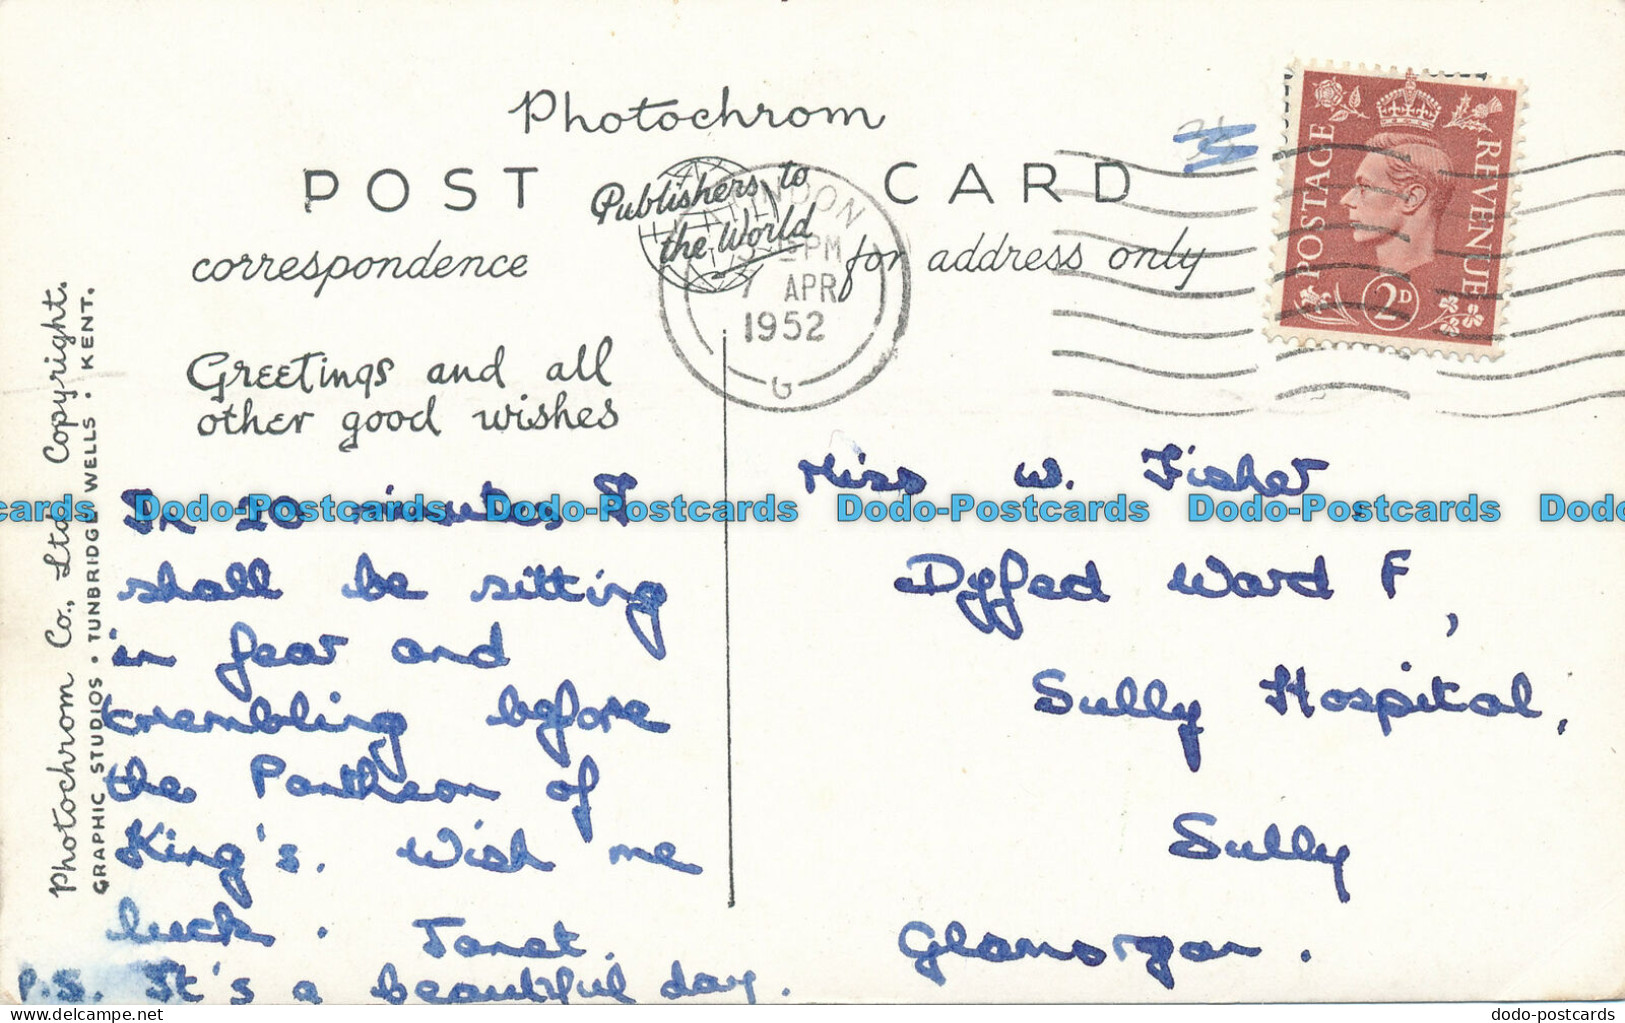 Photochrom
POST CARD
Publishers to
the World
correspondence
for address only
LONDON
PM
7 APR
1952
G
POSTAGE
REVENUE
2D
Greetings and all
other good wishes
Photochrom Co., Ltd Copyright.
GRAPHIC STUDIOS · TUNBRIDGE WELLS · KENT.
In 20 minutes I
shall be sitting
in fear and
trembling before
the Pantheon of
King's. Wish me
luck. Janet.
P.S. It's a beautiful day.
Miss W. Fisher,
Dyfed Ward F,
Sully Hospital,
Sully
Glamorgan.
Dodo-Postcards Dodo-Postcards Dodo-Postcards Dodo-Postcards Dodo-Postcards
dodo-postcards